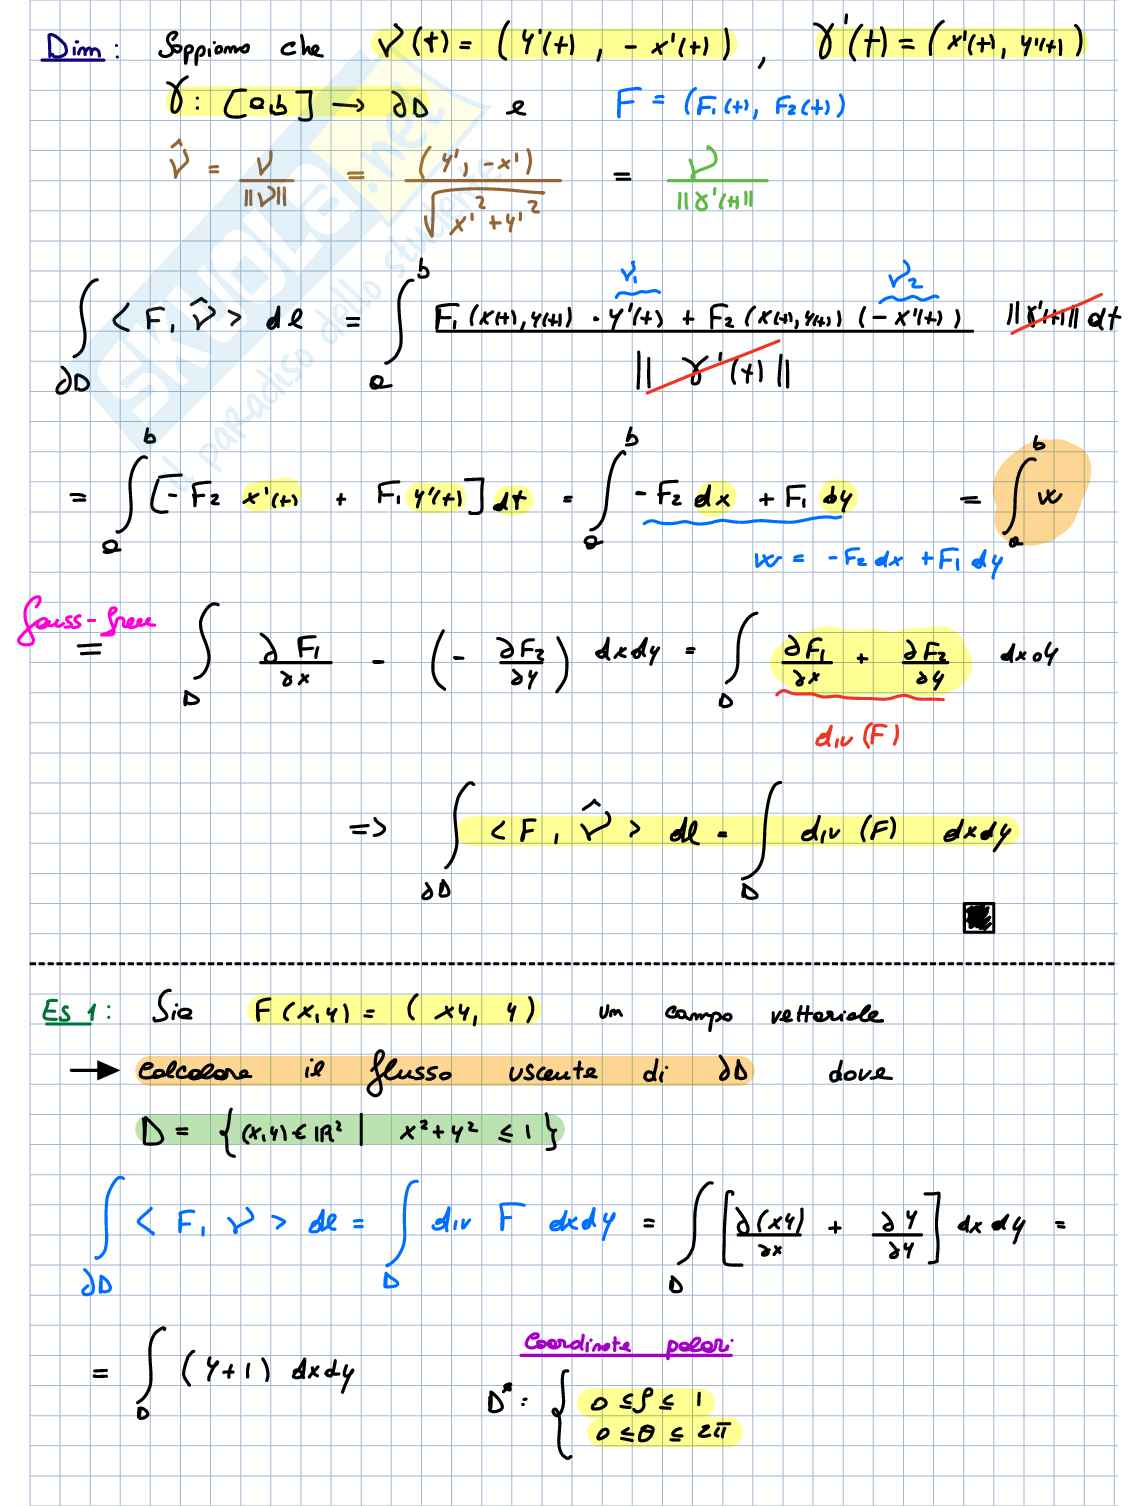 Dim: Sappiamo che ν(t) = (y'(t), -x'(t)), γ'(t) = (x'(t), y'(t))
γ: [a b] → ∂D e F = (F₁(t), F₂(t))
ν̂ = ν / ||ν|| = (y', -x') / √(x'² + y'²) = ν / ||γ'(t)||
ν₁ ν₂
∫_∂D < F, ν̂ > dl = ∫_a^b [F₁(x(t), y(t)) · y'(t) + F₂(x(t), y(t)) (-x'(t))] / ||γ'(t)|| ||γ'(t)|| dt
= ∫_a^b [-F₂ x'(t) + F₁ y'(t)] dt = ∫_a^b -F₂ dx + F₁ dy = ∫_a^b w
w = -F₂ dx + F₁ dy
Gauss-Green
= ∫_D ∂F₁/∂x - (- ∂F₂/∂y) dx dy = ∫_D ∂F₁/∂x + ∂F₂/∂y dx dy
div (F)
=> ∫_∂D < F, ν̂ > dl = ∫_D div (F) dx dy
Es 1: Sia F(x,y) = (xy, y) un campo vettoriale
→ calcolare il flusso uscente di ∂D dove
D = {(x,y) ∈ ℝ² | x² + y² ≤ 1}
∫_∂D < F, ν > dl = ∫_D div F dx dy = ∫_D [∂(xy)/∂x + ∂y/∂y] dx dy =
Coordinate polari
= ∫_D (y+1) dx dy D*: { 0 ≤ ρ ≤ 1
0 ≤ θ ≤ 2π
SKUOLA.net
il paradiso dello studente